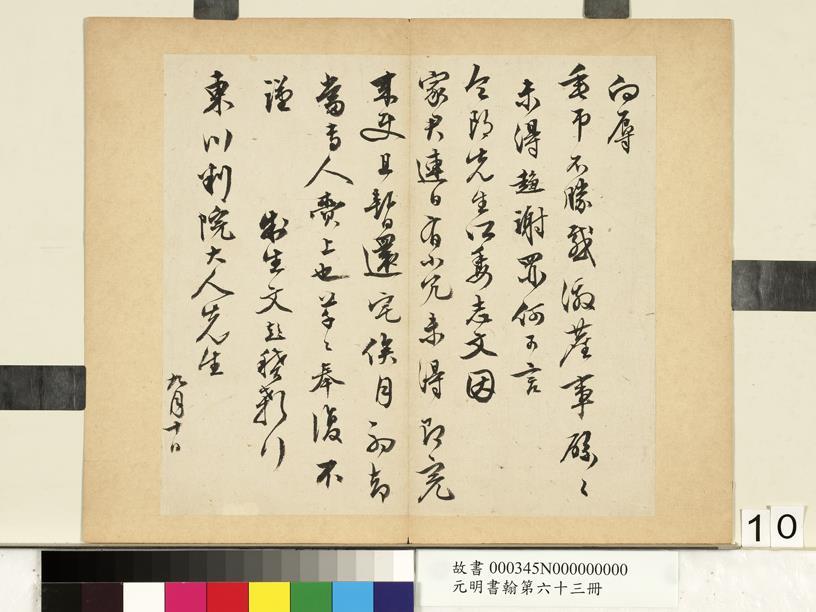 向辱
重币不勝感激塵事碌々
未得趨謝罪何可言
令郎先生所委志文因
家君連日有小冗未得即完
來吏且暫還宅俟月初
當專人賫上也草々奉復不
謹
制生文彭稽顙
東川判院大人先生
九月十日
10
故書 000345N000000000
元明書翰第六十三冊